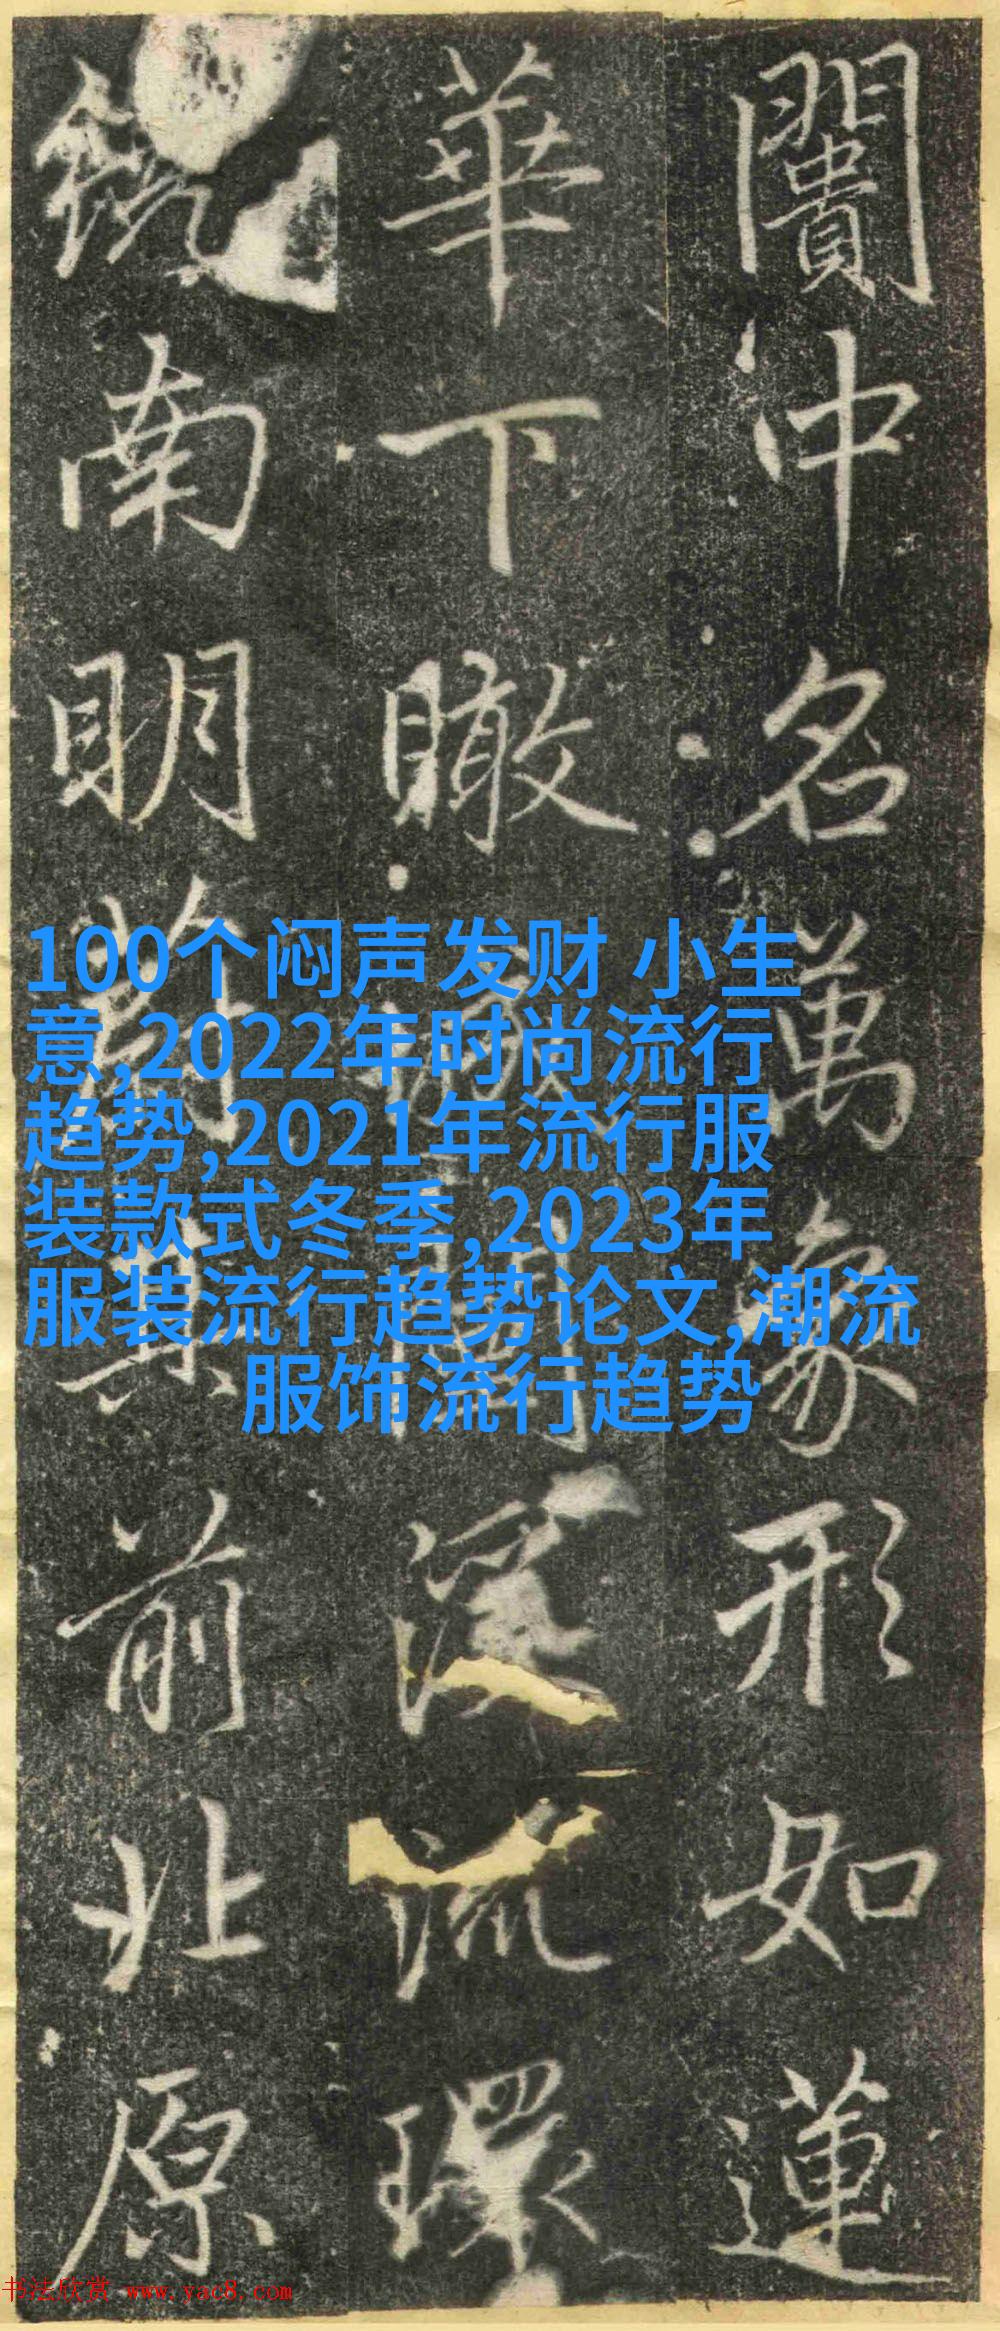 闠中名萬象形如蓮
華下瞰深流環
南明前北原
100个闷声发财 小生
意,2022年时尚流行
趋势,2021年流行服
装款式冬季,2023年
服装流行趋势论文,潮流
服饰流行趋势
书法欣赏 www.yac8.com